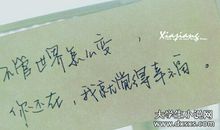 Xinjiang
不管世界怎么变，
你还在，我就觉得幸福。
大学生小说网
www.dxsxs.com